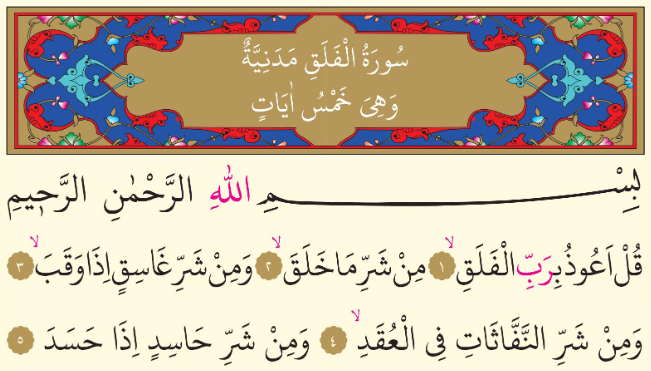 سُورَةُ الْفَلَقِ مَدَنِيَّةٌ
وَهِيَ خَمْسُ اٰيَاتٍ
بِسْمِ اللّٰهِ الرَّحْمٰنِ الرَّح۪يمِ
قُلْ اَعُوذُ بِرَبِّ الْفَلَقِۙ ﴿١﴾ مِنْ شَرِّ مَا خَلَقَۙ ﴿٢﴾ وَمِنْ شَرِّ غَاسِقٍ اِذَا وَقَبَۙ ﴿٣﴾
وَمِنْ شَرِّ النَّفَّاثَاتِ فِي الْعُقَدِۙ ﴿٤﴾ وَمِنْ شَرِّ حَاسِدٍ اِذَا حَسَدَ ﴿٥﴾